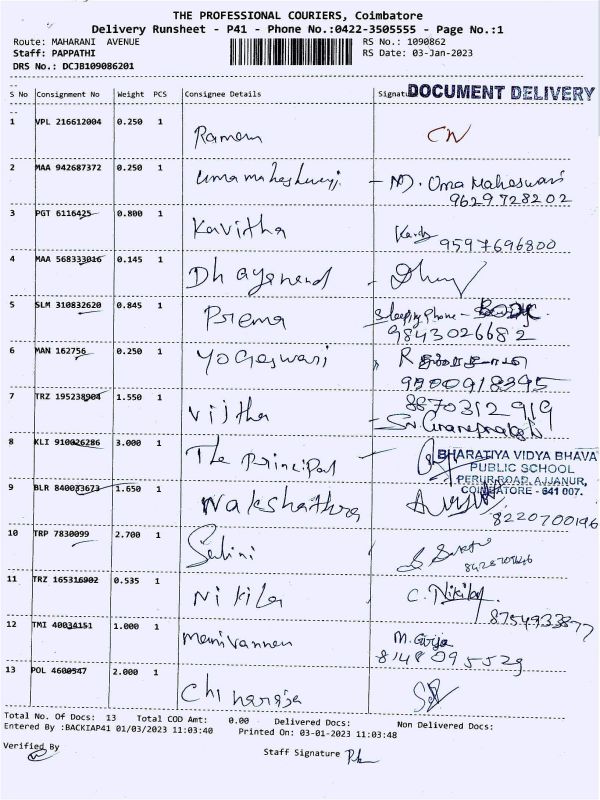 THE PROFESSIONAL COURIERS, Coimbatore
Delivery Runsheet - P41 - Phone No.:0422-3505555 - Page No.:1
Route: MAHARANI AVENUE RS No.: 1090862
Staff: PAPPATHI RS Date: 03-Jan-2023
DRS No.: DCJB109086201
DOCUMENT DELIVERY
S No Consignment No Weight PCS Consignee Details
1 VPL 216612004 0.250 1 Ramem CN
2 MAA 942687372 0.250 1 Umamaheshwari - M. Uma Maheswari
9629728202
3 PGT 6116425 0.800 1 Kavitha 9597696800
4 MAA 568333016 0.145 1 Dhayanend
5 SLM 310832620 0.845 1 Prema Sleeping Phone -
9843026682
6 MAN 162756 0.250 1 Yogeswari
7 TRZ 195238904 1.550 1 Vijtha 8870312919
8 KLI 910026286 3.000 1 The Principal
BHARATIYA VIDYA BHAVA
PUBLIC SCHOOL
PERUR ROAD, AJJANUR,
COIMBATORE - 641 007.
9 BLR 840033673 1.650 1 Nakshathra
8220700196
10 TRP 7830099 2.700 1 Salini
11 TRZ 165316902 0.535 1 Nikila C. Nikila
8754933877
12 TMI 40034151 1.000 1 Manivannan M. Girija
8148095529
13 POL 4600547 2.000 1 Chinaraja
Total No. Of Docs: 13 Total COD Amt: 0.00 Delivered Docs: Non Delivered Docs:
Entered By :BACKIAP41 01/03/2023 11:03:40 Printed On: 03-01-2023 11:03:48
Verified By Staff Signature